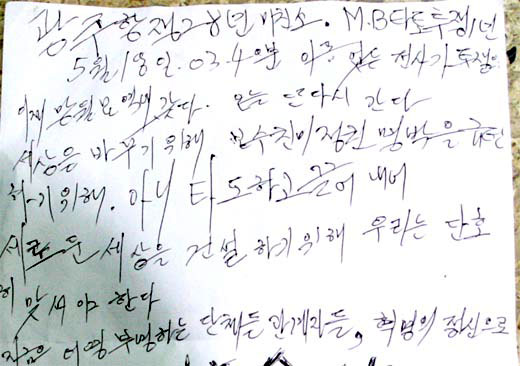 광주항쟁28년 마천소. M.B타도투쟁1년
5월18일.03.4분 이름 없는 전사가 투쟁을
어제 망월묘역에 갔다. 오늘 또다시 간다
세상을 바꾸기 위해 보수친미정권 명박을 규탄
하기 위해. 아니 타도하고 끌어 내어
새로운 세상을 건설하기위해 우리는 단호
히 맞서야 한다
지금은 어영부영하는 단체들 관계자들, 혁명의 정신으로